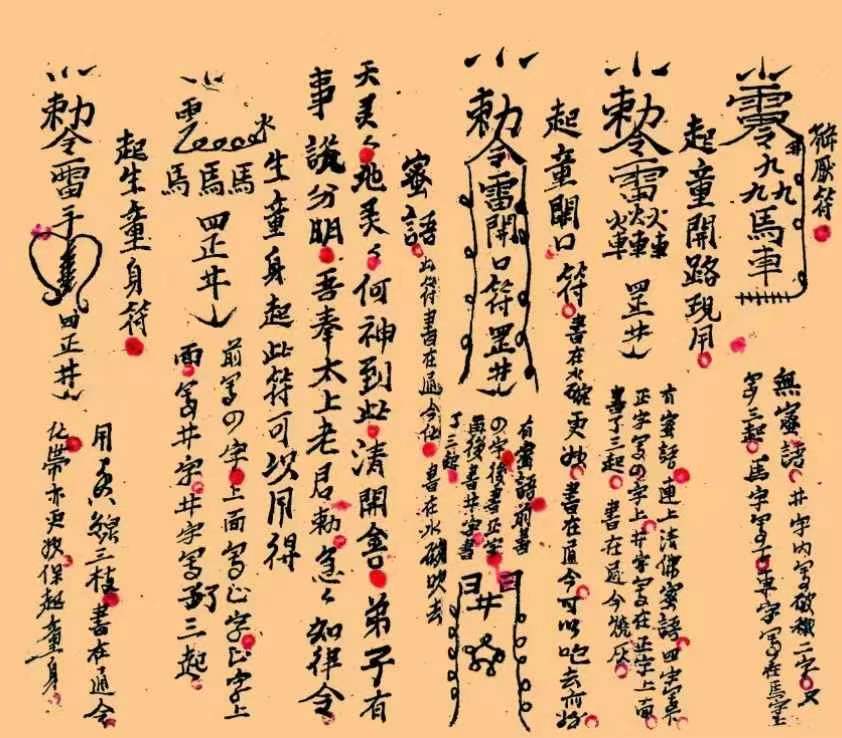 解厭符
零令九九九馬車
無蜜語井字內寫破穢二字又
寫三起馬字寫
車字寫在馬字上
起童開路現用
敕令雷火車火車火車罡井
有蜜語連上清佛蜜語四字寫
正字寫四字上井字寫在正字上面
書了三起書在通令燒灰
起童開口符書在水碗更妙書在通令可以吃去亦妙
敕令雷開口符罡井
有蜜語前書
四字後書正字
再後書井字書
了三起
日井日
蜜語此符書在通令化書在水碗吹去
天灵々地灵々何神到此清開舍弟子有
事說分明吾奉太上老君勅急々如律令
生童身起此符可以用得
馬馬馬四正井
前寫四字上面寫正字正字上
面寫井字井字寫了三起
起生童身符
敕令雷手
四正井
用香線三枝書在通令
化帶亦更妙保起童身